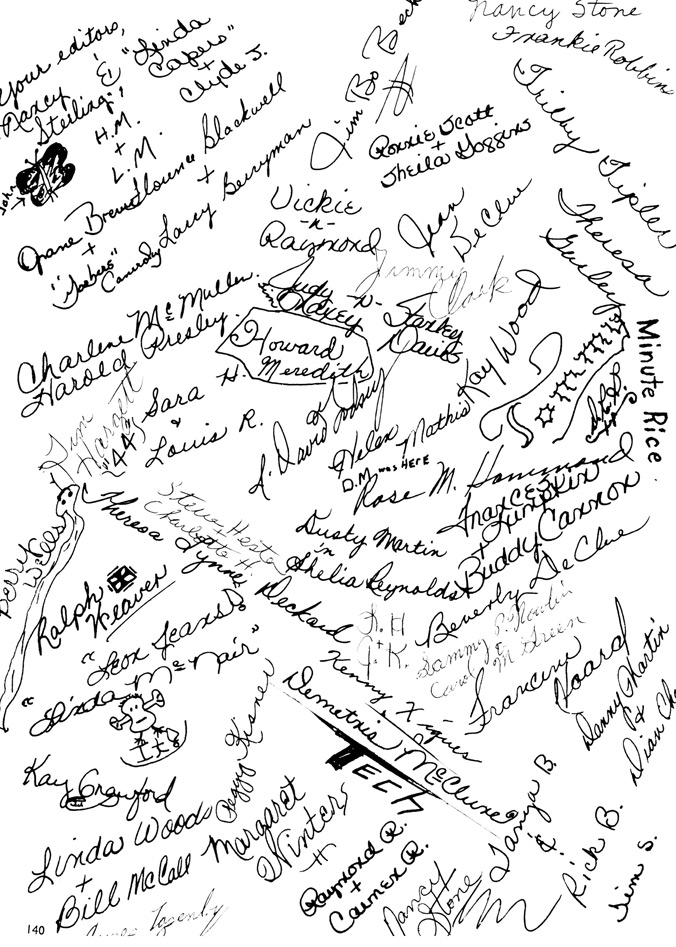 Nancy Stone
Frankie Robbins
Your editors,
Nancy
Sterling
&
"Linda
Capers"
+
Clyde J.
H.M.
+
L.M.
John
Jim Bo Beck
Ronnie Scott
+
Sheila Goggins
Trilby Tipler
Theresa
Gurley
Opane Brewer
+
"Goebers"
Flounce Blackwell
+
Larry Berryman
Vickie
-n-
Raymond
Jean
DeClue
Jimmy
Clark
Charlene McMullen
Harold Presley
Judy -n- Starkey
Davis
Howard
Meredith
Kay Wood
Minute Rice
Jim
"44"
Sara H.
&
Louis R.
A. David
Helen Mathis
D.M. was HERE
Rose M. Hammond
Frances
+ Lumpkin
Buddy Cannon
Theresa Lynne Deckard
Steve Hester
Charlotte H.
Dusty Martin
'n
Shelia Reynolds
Beverly DeClue
Ralph
Weaver
"Leon Jeans"
"Linda McNair"
J.K.
Sammy
Carolyn
M Green
Francine Board
Kenny
Demetria McClure
TECH
Danny Martin
&
Dian
Kay Crawford
Peggy Kisner
Linda Woods
+
Bill McCall
Margaret
Winters
Raymond R.
+
Carmen R.
Nancy
Stone
Tanya B.
&
Rick B.
Jim S.
140